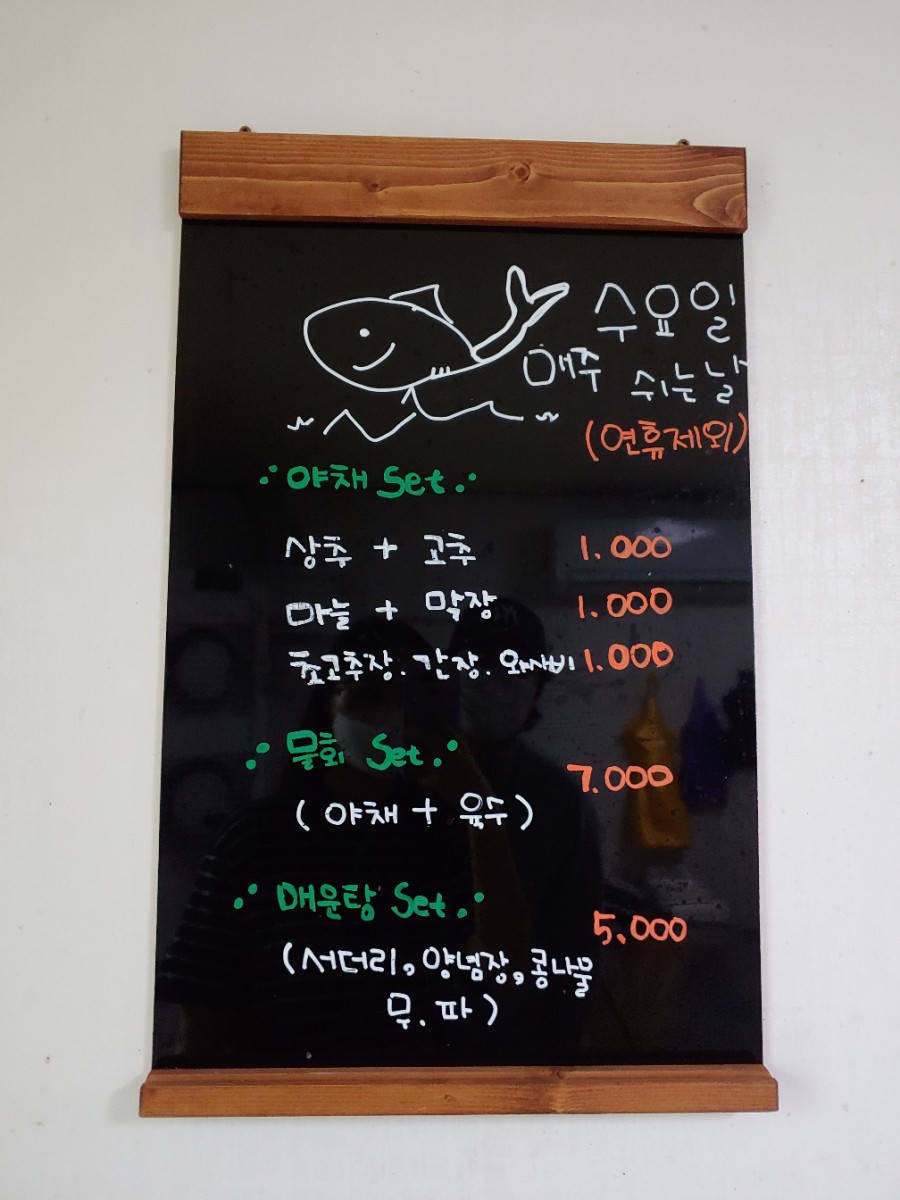 수요일
매주 쉬는날
(연휴제외)
야채 Set
상추 + 고추 1.000
마늘 + 막장 1.000
초고추장. 간장. 와사비 1.000
물회 Set 7.000
(야채 + 육수)
매운탕 Set 5.000
(서더리, 양념장, 콩나물
무. 파)